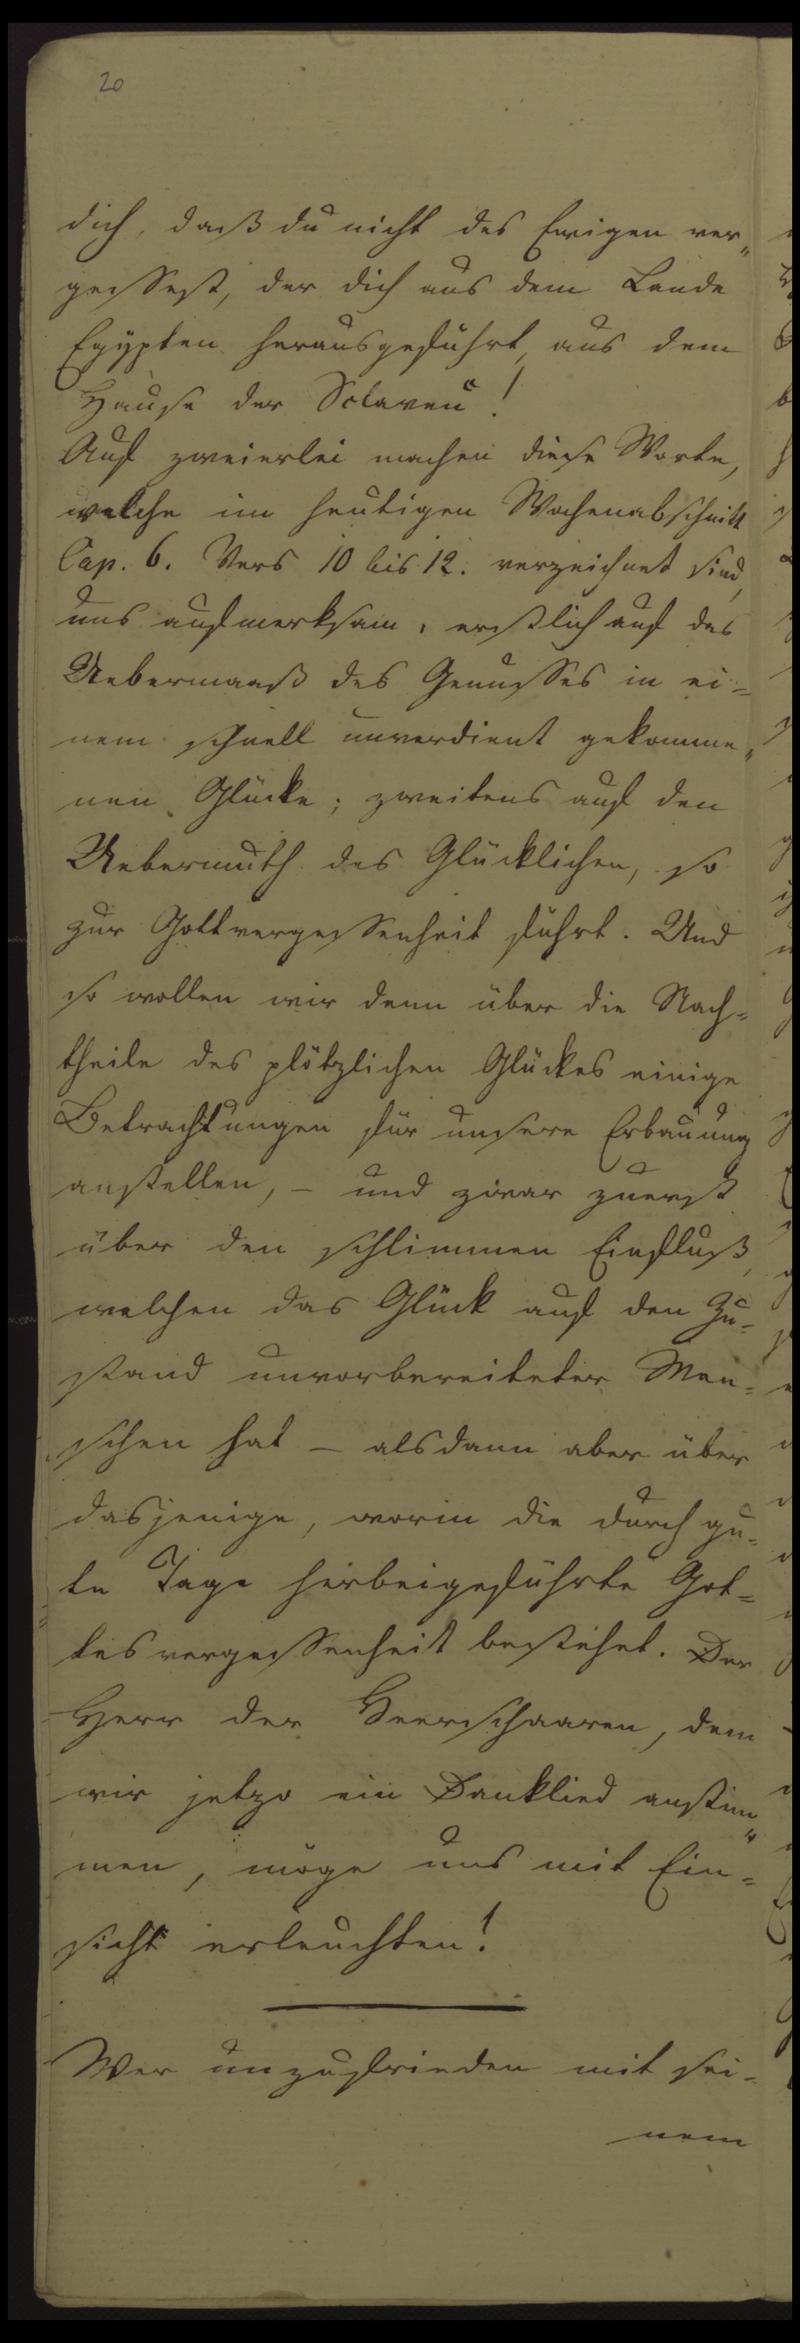 20
dich, daß du nicht des Ewigen ver„
gessest, der dich aus dem Lande
Egypten herausgeführt, aus dem
Hause der Sclaven“!
Auf zweierlei machen diese Worte,
welche im heutigen Wochenabschnitt
Cap. 6. Vers 10 bis 12. verzeichnet sind,
uns aufmerksam, erstlich auf das
Uebermaaß des Genusses in ei=
nem schnell unverdient gekomme„
nen Glücke; zweitens auf den
Uebermuth des Glücklichen, so
zur Gottvergessenheit führt. Und
so wollen wir denn über die Nach=
theile des plötzlichen Glückes einige
Betrachtungen für unsere Erbauung
anstellen, – und zwar zuerst
über den schlimmen Einfluß,
welchen das Glück auf den Zu=
stand unvorbereiteter Men=
schen hat – alsdann aber über
dasjenige, worin die durch gu=
te Tage herbeigeführte Got=
tesvergessenheit bestehet. Der
Herr der Heerschaaren, dem
wir jetzo ein Danklied anstim„
men, möge uns mit Ein=
sicht erleuchten!
Wer unzufrieden mit sei=
nem